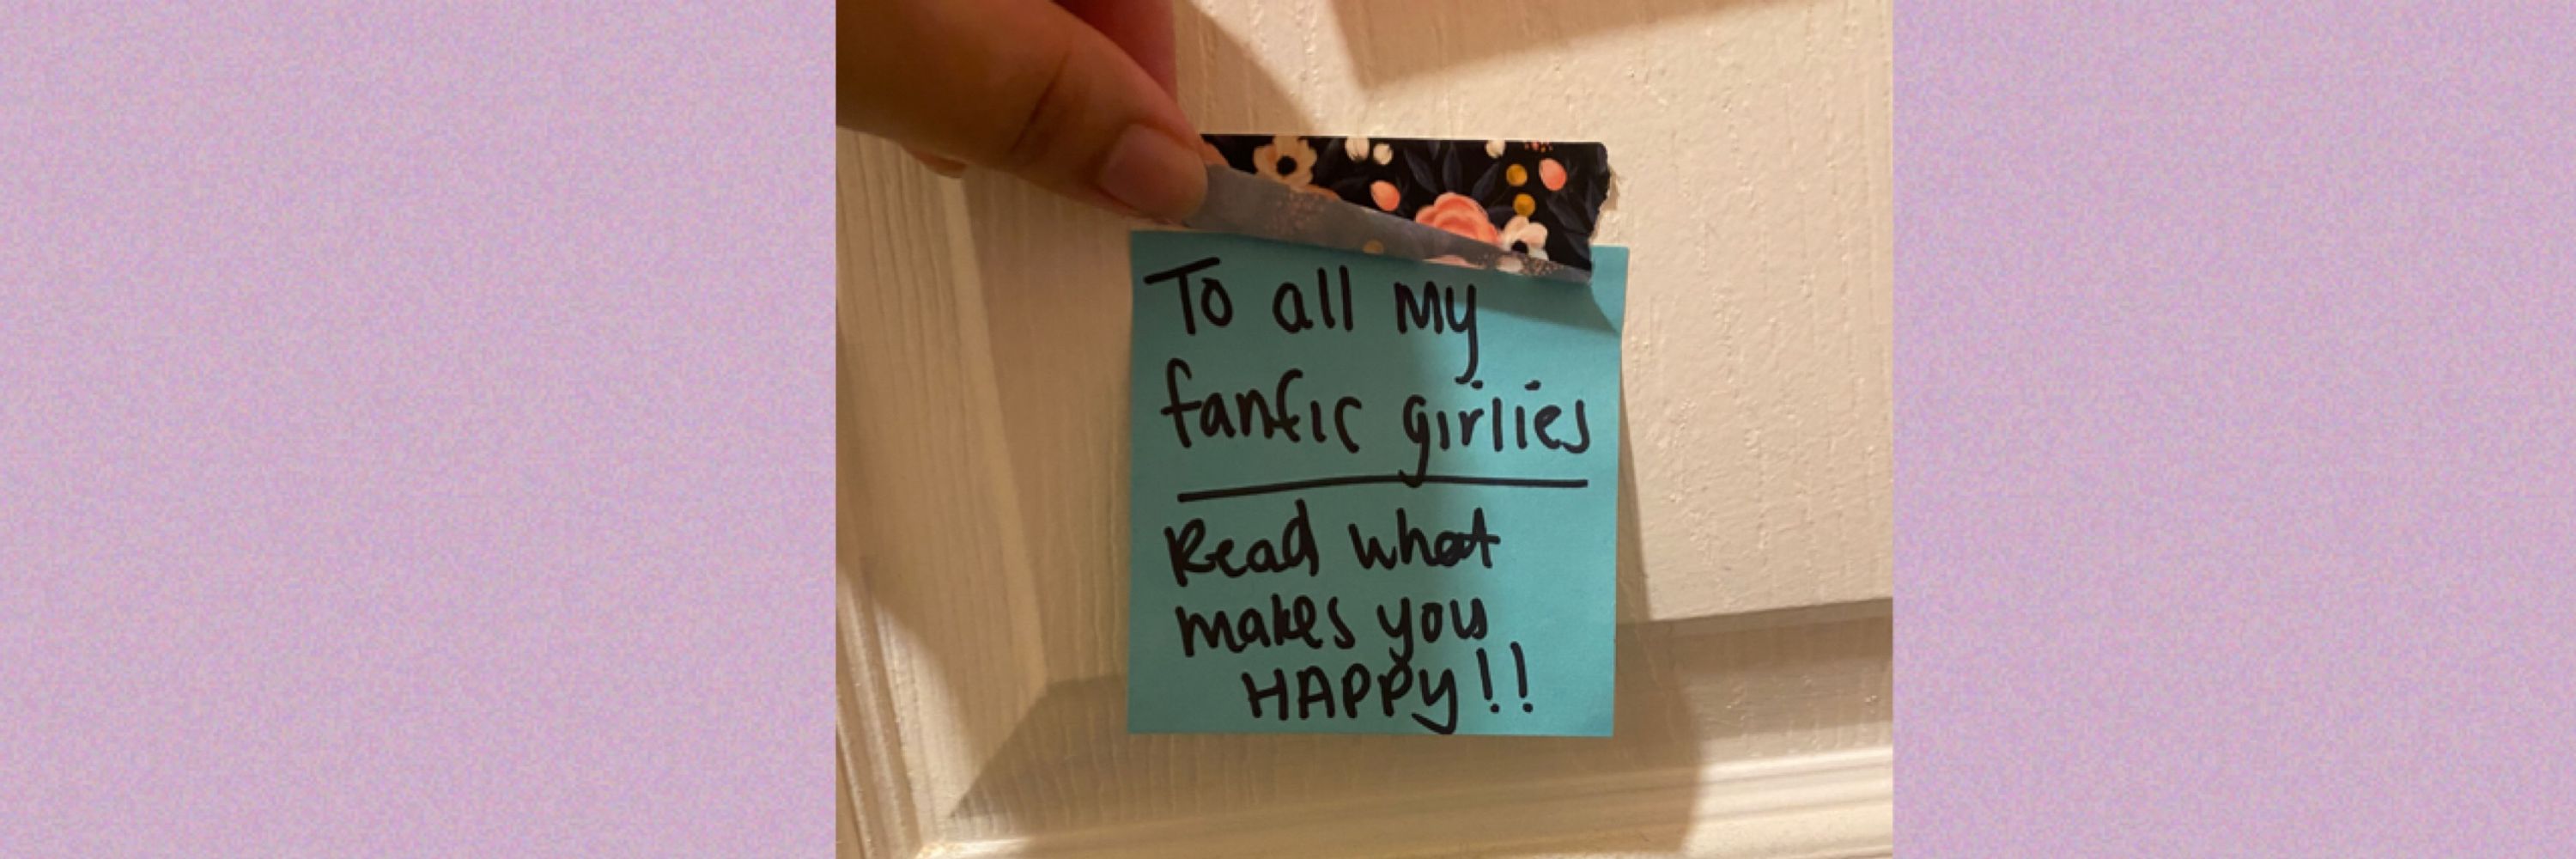 To all my
fanfic girlies
Read what
makes you
HAPPY!!